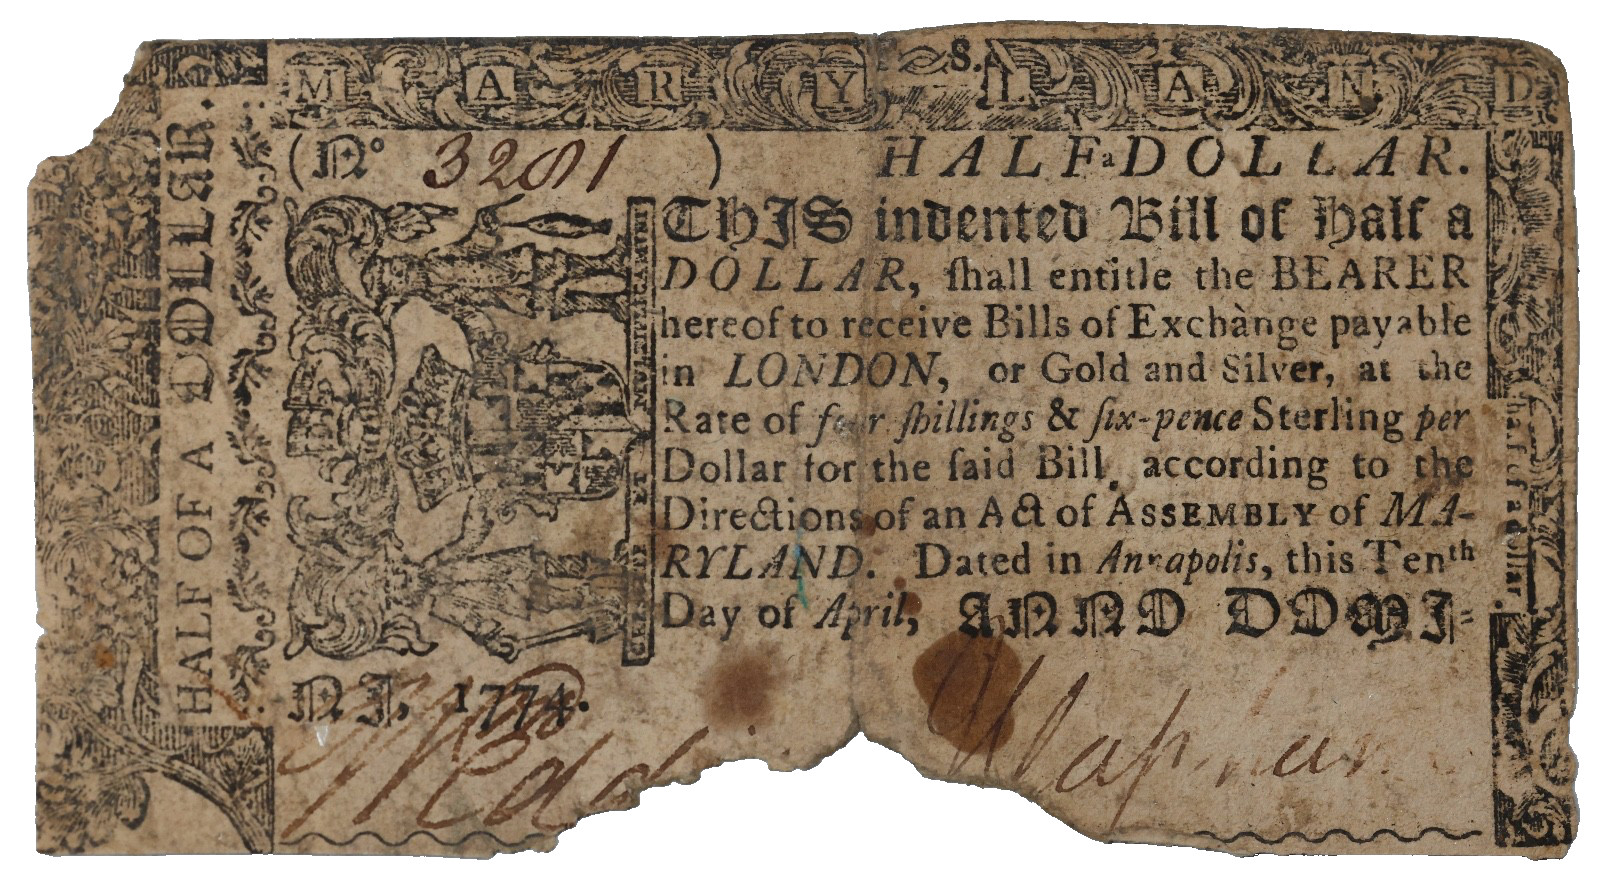 S.
MARYLAND
(No 3281) HALF a DOLLAR.
THIS indented Bill of Half a
DOLLAR, ſhall entitle the BEARER
hereof to receive Bills of Exchànge payable
in LONDON, or Gold and Silver, at the
Rate of four ſhillings & ſix-pence Sterling per
Dollar for the ſaid Bill, according to the
Directions of an Act of ASSEMBLY of MA-
RYLAND. Dated in Annapolis, this Tenth
Day of April, ANNO DOMI=
NI, 1774.
HALF OF A DOLLAR.
CRESCITE ET MULTIPLICAMINI
half of a dollar.